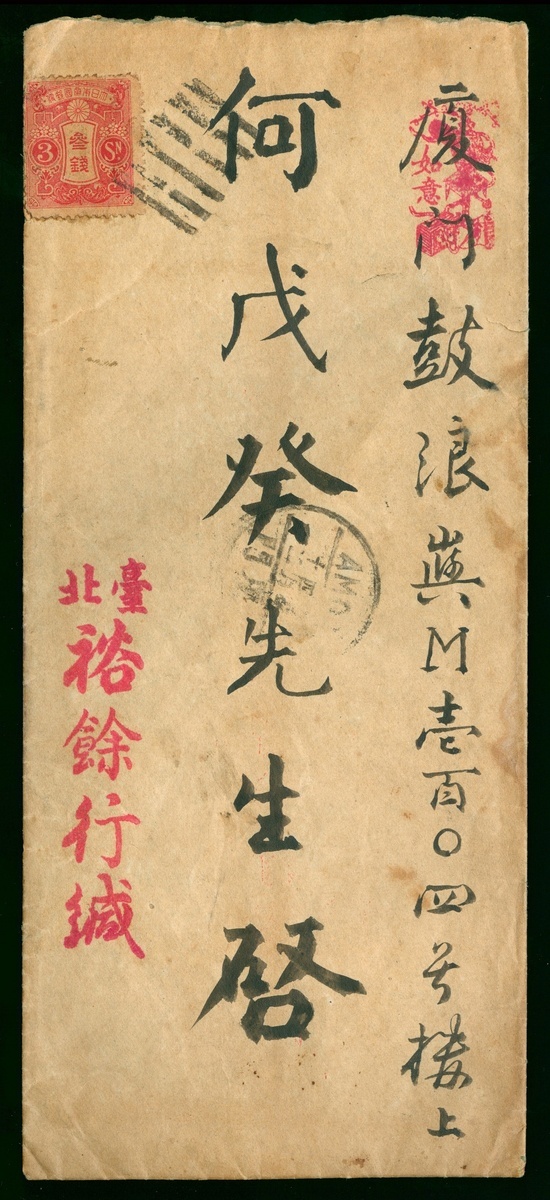 廈門鼓浪嶼M壹百〇四号樓上
如意
何戊癸先生啓
AMO
大日本帝國郵便
叁錢
3 Sn
臺北
裕餘行緘